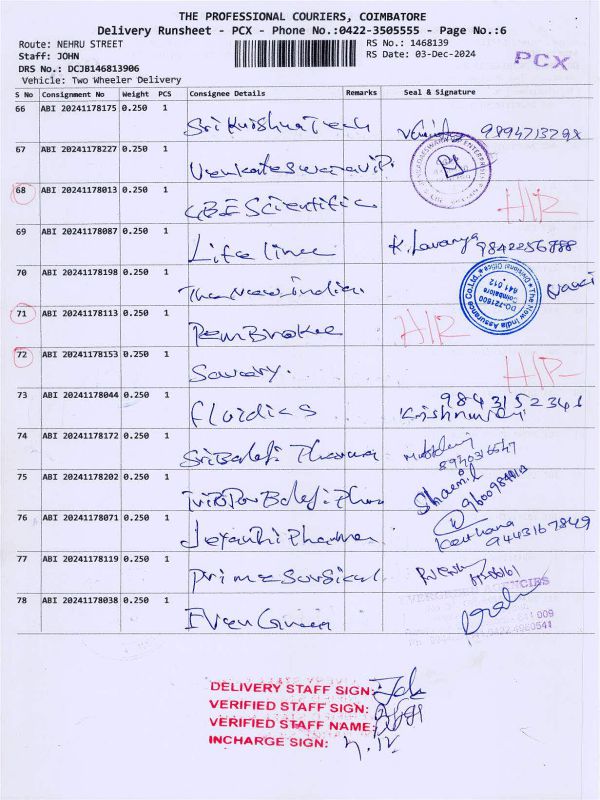 THE PROFESSIONAL COURIERS, COIMBATORE
Delivery Runsheet - PCX - Phone No.:0422-3505555 - Page No.:6
Route: NEHRU STREET RS No.: 1468139
Staff: JOHN RS Date: 03-Dec-2024 PCX
DRS No.: DCJB146813906
Vehicle: Two Wheeler Delivery
S No Consignment No Weight PCS Consignee Details Remarks Seal & Signature
66 ABI 20241178175 0.250 1 Sri Krishna Tech
67 ABI 20241178227 0.250 1 Venkateswara
68 ABI 20241178013 0.250 1 Scientific
69 ABI 20241178087 0.250 1 Life line K. Lavanya 9842256888
70 ABI 20241178198 0.250 1 The New India The New India Assurance Co.Ltd. DO-721600 Coimbatore 641 012 Divisional Office
71 ABI 20241178113 0.250 1
72 ABI 20241178153 0.250 1
73 ABI 20241178044 0.250 1 fluidics 9843152341
74 ABI 20241178172 0.250 1 Sri Balaji
75 ABI 20241178202 0.250 1 Balaji
76 ABI 20241178071 0.250 1 Jeyanthi Pharma Keerthana 9443167849
77 ABI 20241178119 0.250 1 Prime Surgical
78 ABI 20241178038 0.250 1 Ever Green
DELIVERY STAFF SIGN:
VERIFIED STAFF SIGN:
VERIFIED STAFF NAME:
INCHARGE SIGN: